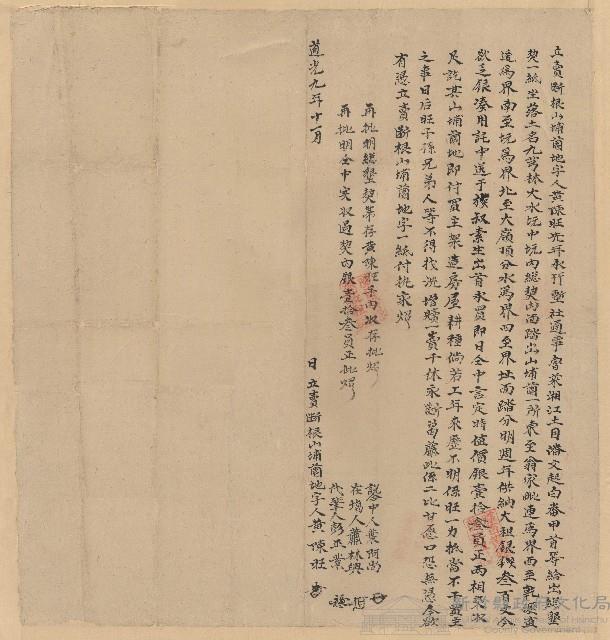 立賣斷根山埔菌地字人黃陳旺先年承竹塹社通事魯萊湘江土目潘文起白番甲首等給出總墾
契一紙坐落土名九芎林大水坑中坑內總契內洒踏出山埔菌一所東至翁家毗連為界西至乾
為界南至坑為界北至大嶺頂分水為界四至界址面踏分明週年供納大租銀叁
欲乏銀湊用託中送于叔素生出首承買即日仝中言定時值價銀壹拾叁員正兩相
足訖其山埔菌地即付買主架造房屋耕種倘若工年來歷不明係旺一力抵當不干買主
之事日后旺子孫兄弟人等不得找洗增贖一賣千休永斷葛藤此係二比甘愿口恐無憑今欲
有憑立賣斷根山埔菌地字一紙付执永炤
再批明總墾契第存黃陳旺手內收存批炤
再批明仝中實收過契內銀壹拾叁員正批炤
說中人葉阿尚
在塲人蕭林興
代筆人彭正業
道光九年十一月 日立賣斷根山埔菌地字人黃陳旺
新竹縣政府文化局